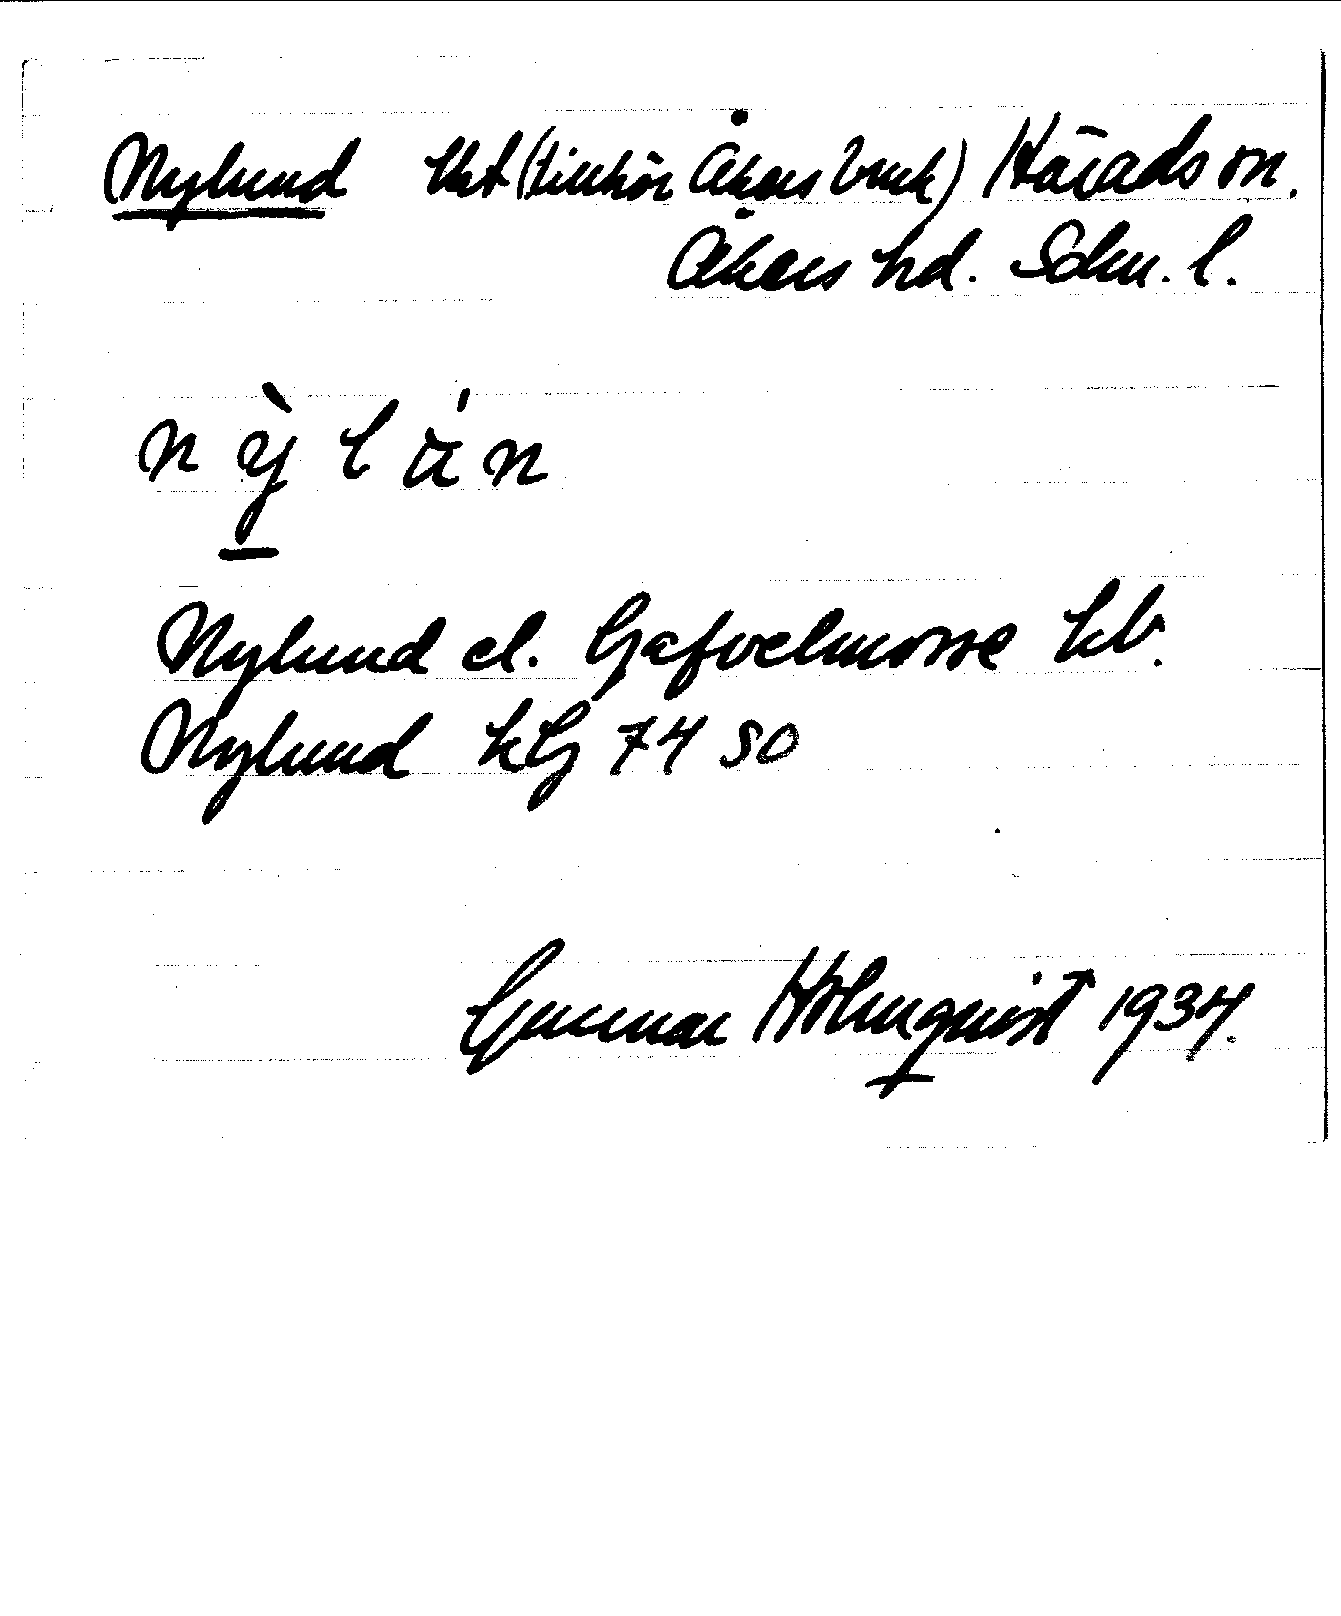 Nylund lht (tillhör Åkers bruk) Härads sn.
Åkers hd. Sdm. l.
n ỳ l ú n
Nylund el. Gafvelmosse kb.
Nylund kG 74 SO
Gunnar Holmquist 1934.